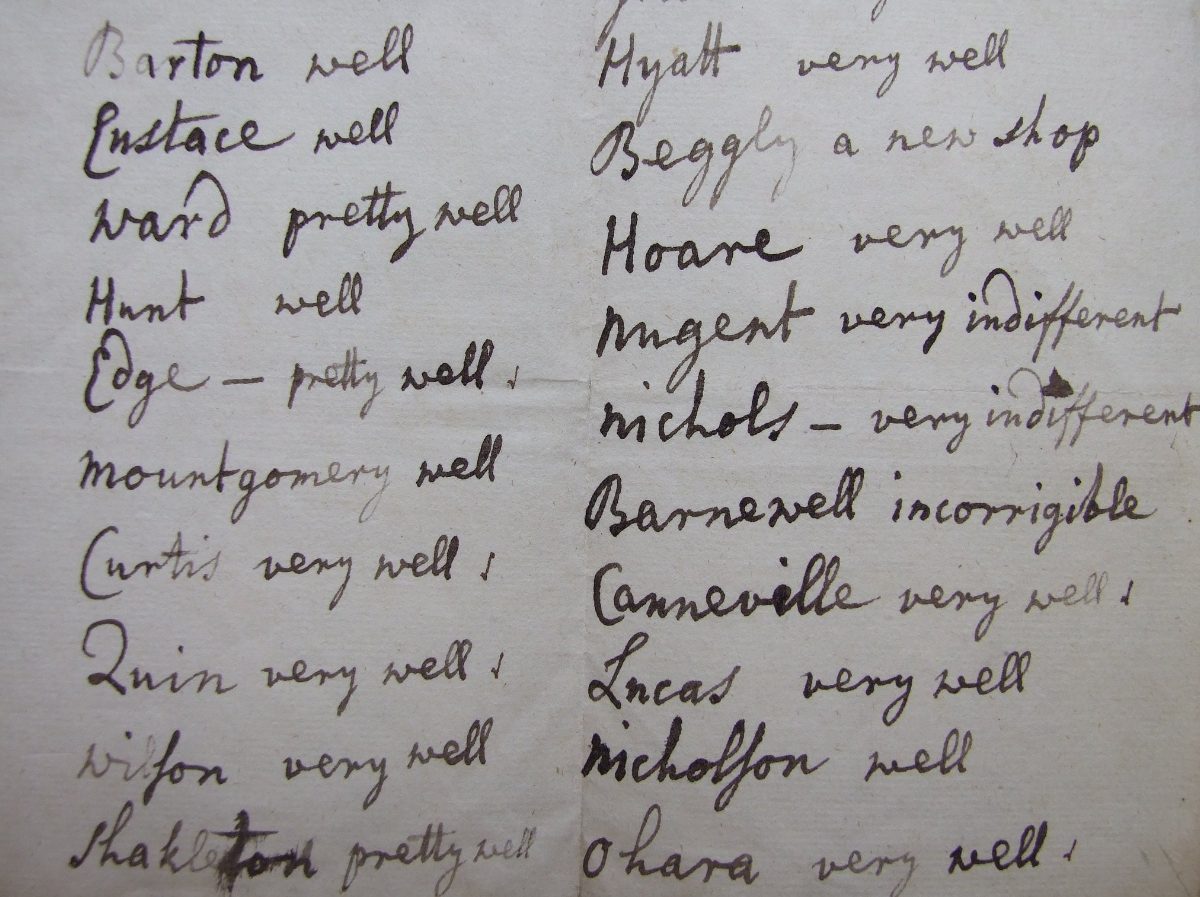 Barton well
Eustace well
Ward pretty well
Hunt well
Edge — pretty well.
Mountgomery well
Curtis very well.
Quin very well.
Wilson very well
Shakleton pretty well
Hyatt very well
Beggly a new shop
Hoare very well
Nugent very indifferent
Nichols — very indifferent
Barnewell incorrigible
Canneville very well.
Lucas very well
Nicholson well
Ohara very well.